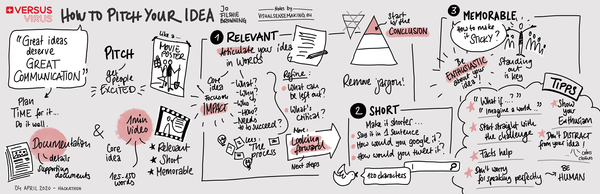 VERSUS
VIRUS
HOW TO PITCH YOUR IDEA
JO
FILSHIE
BROWNING
Notes by
VISUALSENSEMAKING.CH
"Great ideas
deserve
GREAT
COMMUNICATION"
Plan
TIME for it...
Do it well.
Documentation
details
supporting
documents
&
1min
Video
Core
idea
125-150
words
04 APRIL 2020 - HACKATHON
PITCH
gets
people
EXCITED
Like a...
MOVIE
POSTER
Relevant
Short
Memorable
1 RELEVANT
Articulate your idea
in WORDS
Core
idea
Focus on
IMPACT
What?
Why?
Who?
How?
Needs
to succeed?
The
process
Refine:
What can
be left out?
What's
critical?
More:
Looking
forward
Next steps
Start
by the
CONCLUSION
Remove jargon!
2 SHORT
Make it shorter...
Say it in 1 sentence
How would you google it?
How would you tweet it?
characters
3 MEMORABLE
How to make
it STICKY?
Be
ENTHUSIASTIC
about your
idea!
Standing
out
is key
"What if...?"
"Imagine a world
Start straight with
the challenge
Facts help
Don't worry
for speaking perfectly
TIPPS
Show
your
Enthusiasm
Don't DISTRACT
from your idea!
BE
HUMAN